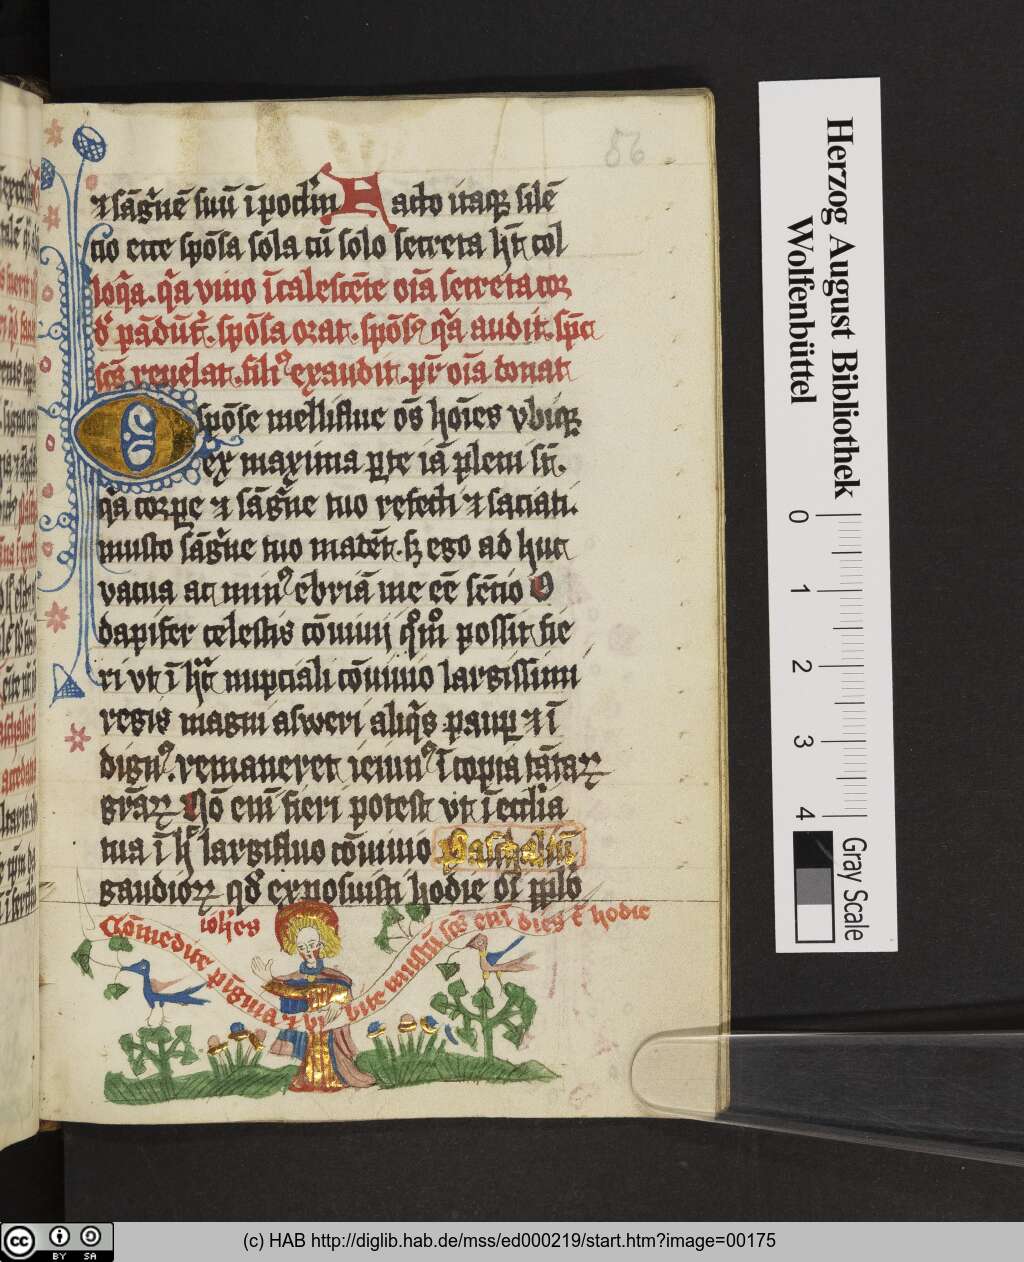 86
⁊ sāgᵉnē suū ī pocl'm Facto itaqꝫ silē
cio ecce spōsa sola cū solo secreta hꝫ col
loqͣa. qͣa vino īcalescēte oīa secreta cor
dꝭ pādūtͬ. spōsa orat. spōsꝰ qͣa audit. spc̄
scs̄ reuelat. filiꝰ exaudit. pr̄ oīa donat
O spōse melliflue os̄ hoīes vbiqꝫ
ex maxima ꝑte iā pleni st̄.
qͣa corꝑe ⁊ sāgᵉne tuo refecti ⁊ saciati.
musto sāgᵉne tuo madēt. sꝫ ego ad huc
vacua ac minꝰ ebriā me eē sēcio O
dapifer celestis cōuiuij qͦmͦ possit fie
ri vt ī hͦc nupciali cōuiuio largissimi
regis magni asweri aliqͥs pauꝑ ⁊ ī
dignꝰ. remaneret ieiunꝰ ī copia tātaꝝ
grāꝝ Nō enī fieri potest vt ī eccl'ia
tua ī hͦ largifluo cōuiuio Paschaliū
gaudioꝝ qd' exposuisti hodie oī ppl'o
ioh'es
Cōmedite pīgwia ⁊ bi bite mustū scs̄ enī dies ē hodie
Herzog August Bibliothek
Wolfenbüttel
0 1 2 3 4
Gray Scale
BY SA
(c) HAB http://diglib.hab.de/mss/ed000219/start.htm?image=00175